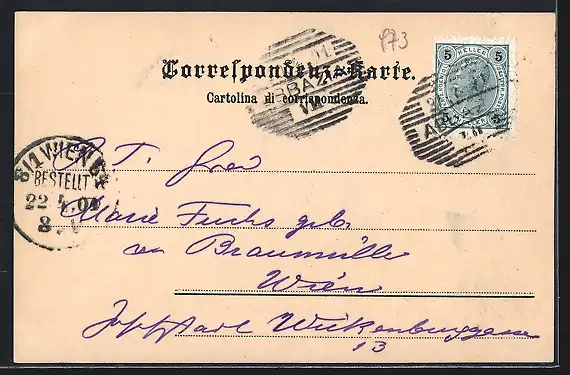 973
Correspondenz-Karte.
Cartolina di corrispondenza.
5 HELLER 5
ABBAZ
8/1 WIEN
BESTELLT
22 4.01
8.V
P. T. Frau
Marie Fuchs geb.
von Braumüller
Wien
Wickenburggasse
13